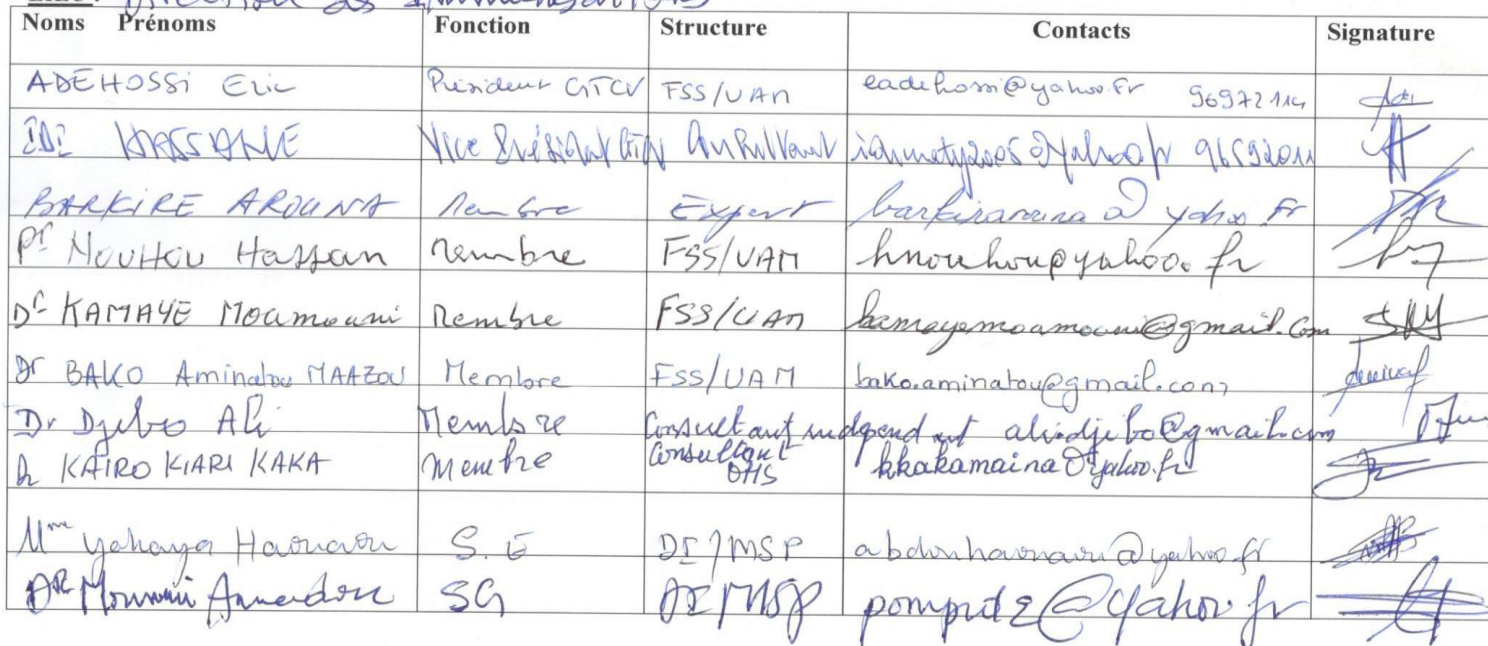 Direction des Immunisations
Noms Prénoms Fonction Structure Contacts Signature
ADEHOSSI Eric Président GTCV FSS/UAM eadehossi@yahoo.fr 96972114
IDI HASSANE Vice Président Consultant
BARKIRE AROUNA Membre Expert yahoo fr
Pr NOUHOU Hassan membre FSS/UAM hnouhou@yahoo.fr
Dr KAMAYE Moumouni Membre FSS/UAM kamayemoumouni@gmail.com
Dr BAKO Aminatou MAAZOU Membre FSS/UAM bako.aminatou@gmail.com
Dr Djibo Ali Membre Consultant independant alidjibo@gmail.com
Dr KAIRO KIARI KAKA Membre Consultant OMS kkakamaina@yahoo.fr
Mme Yahaya Haouaou S.E DI/MSP abdouhaouaou@yahoo.fr
DR SG DI/MSP @yahoo.fr